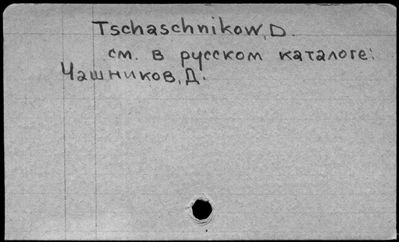 Tschaschnikow, D.
см. в русском каталоге:
Чашников, Д.